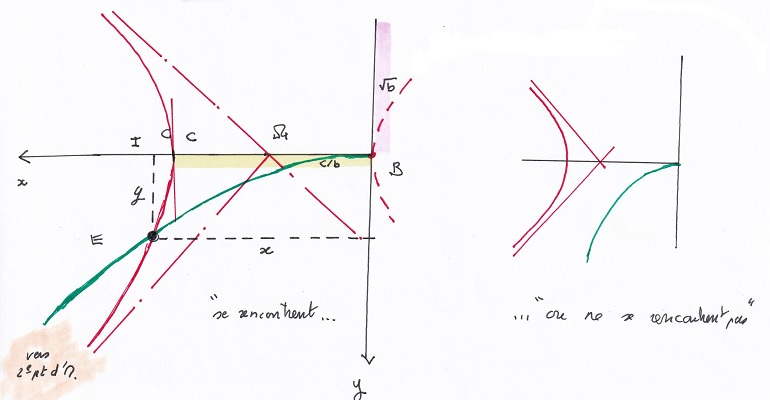 √b
I
C
C
c/b
B
x
y
E
x
"se rencontrent...
..."ou ne se rencontrent pas"
vers
2e pt d'
y